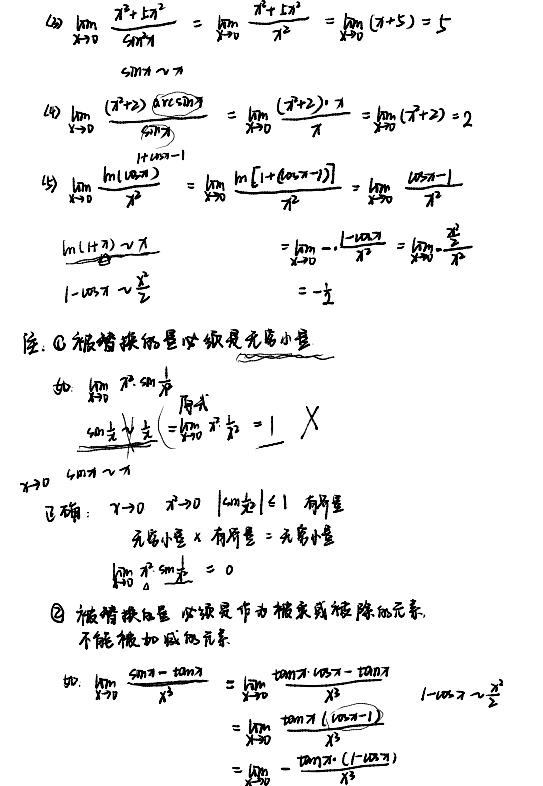 (3) lim x→0 (x³+5x²)/(sin²x) = lim x→0 (x³+5x²)/x² = lim x→0 (x+5) = 5
sinx ~ x
(4) lim x→0 (x²+2)arcsinx/sinx = lim x→0 (x²+2)·x/x = lim x→0 (x²+2) = 2
1+cosx-1
(5) lim x→0 ln(cosx)/x² = lim x→0 ln[1+(cosx-1)]/x² = lim x→0 (cosx-1)/x²
ln(1+x) ~ x = lim x→0 -·(1-cosx)/x² = lim x→0 -(x²/2)/x²
1-cosx ~ x²/2 = -1/2
注: ① 被替换的量必须是无穷小量
如: lim x→0 x²·sin 1/x²
sin 1/x ~ 1/x (原式 = lim x→0 x²·1/x² = 1 ×
x→0 sinx ~ x
正确: x→0 x²→0 |sin 1/x²| ≤ 1 有界量
无穷小量 × 有界量 = 无穷小量
lim x→0 x²·sin 1/x² = 0
② 被替换的量 必须是作为被乘或被除的元素,
不能被加减的元素
如: lim x→0 (sinx - tanx)/x³ = lim x→0 (tanx·cosx - tanx)/x³ 1-cosx ~ x²/2
= lim x→0 tanx(cosx-1)/x³
= lim x→0 - tanx·(1-cosx)/x³